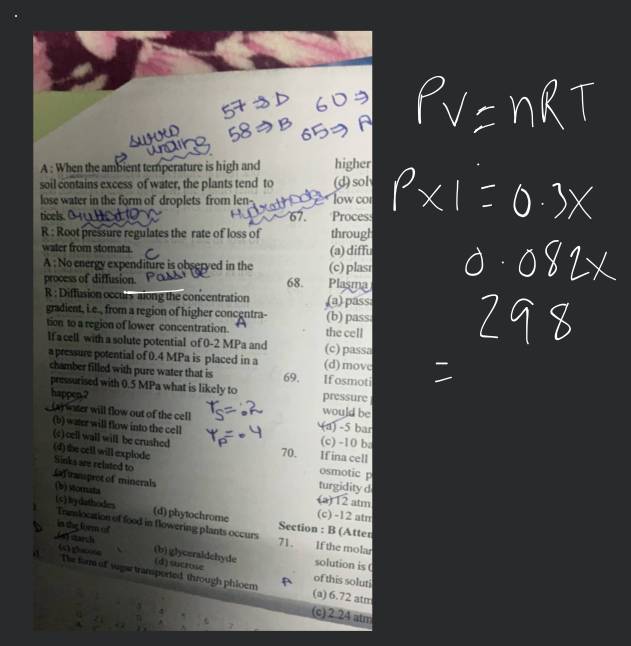 57 ⇒ D 60 ⇒
58 ⇒ B 65 ⇒ A
surro
unding
A : When the ambient temperature is high and
soil contains excess of water, the plants tend to
lose water in the form of droplets from len-
ticels. Guttation Hydathode
R : Root pressure regulates the rate of loss of
water from stomata. C
A : No energy expenditure is observed in the
process of diffusion. Passive
R : Diffusion occurs along the concentration
gradient, i.e., from a region of higher concentra-
tion to a region of lower concentration. A
If a cell with a solute potential of 0-2 MPa and
a pressure potential of 0.4 MPa is placed in a
chamber filled with pure water that is
pressurised with 0.5 MPa what is likely to
happen?
(a) water will flow out of the cell Ψs = .2
(b) water will flow into the cell Ψp = .4
(c) cell wall will be crushed
(d) the cell will explode
Sinks are related to
(a) transprot of minerals
(b) stomata
(c) hydathodes (d) phytochrome
Translocation of food in flowering plants occurs
in the form of
(a) starch (b) glyceraldehyde
(c) glucose (d) sucrose
The form of sugar transported through phloem
higher
(d) sol
low con
67. Process
through
(a) diffu
(c) plasm
68. Plasma
(a) passa
(b) passa
the cell
(c) passa
(d) move
69. If osmoti
pressure
would be
(a) -5 bar
(c) -10 ba
70. If in a cell
osmotic p
turgidity d
(a) 12 atm
(c) -12 atm
Section : B (Atten
71. If the molar
solution is 0
A of this soluti
(a) 6.72 atm
(c) 2.24 atm
PV = nRT
P x 1 = 0.3 x
0.082 x
298
=